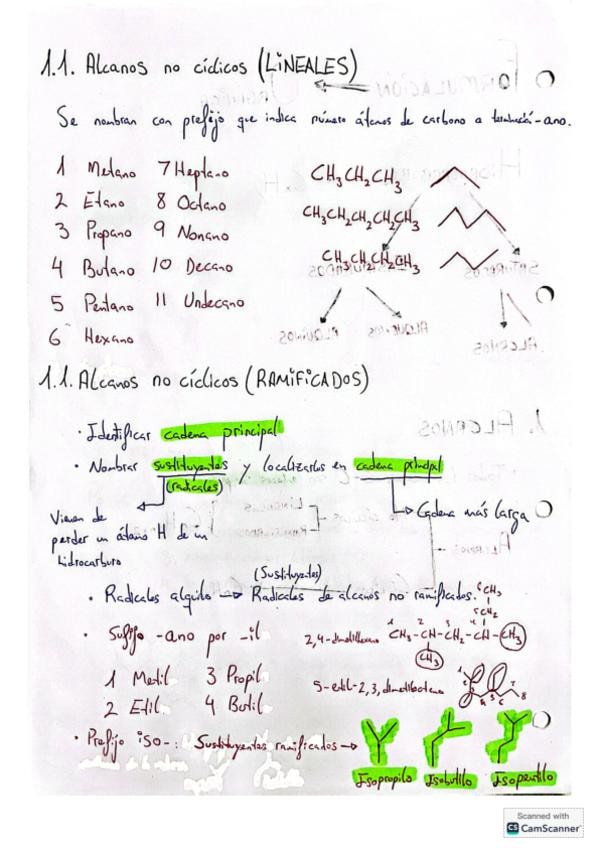 1.1. Alcanos no cíclicos (LINEALES)
Se nombran con prefijo que indica número átomos de carbono a terminació -ano.
1 Metano 7 Heptano
2 Etano 8 Octano
3 Propano 9 Nonano
4 Butano 10 Decano
5 Pentano 11 Undecano
6 Hexano
CH₃CH₂CH₃
CH₃CH₂CH₂CH₂CH₃
CH₃CH₂CH₂CH₃
1.1. Alcanos no cíclicos (RAMIFICADOS)
· Identificar cadena principal
· Nombrar sustituyentes y localizarlos en cadena principal
(radicales)
Vienen de perder un átomo H de un hidrocarburo
Cadena más larga
(Sustituyentes)
· Radicales alquilo → Radicales de alcanos no ramificados.
· Sufijo -ano por -il
1 Metil 3 Propil
2 Etil 4 Butil
⁶CH₃
⁵CH₂
2,4-dimetilhexano CH₃-CH-CH₂-CH-CH₃
CH₃
5-etil-2,3,dimetiloctano
· Prefijo iso-: Sustituyentes ramificados →
Isopropilo Isobutilo Isopentilo
Scanned with
CS CamScanner